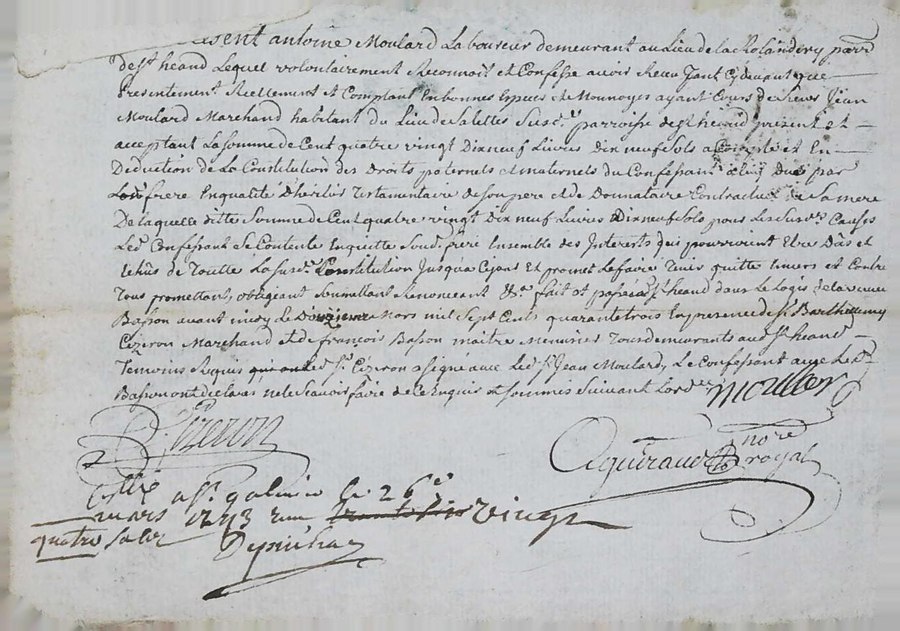 sent antoine Moulard Laboureur demeurant au Lieu de la Rolandery parr.
de st. héand Lequel volontairement Reconnoit et Confesse avoir Receu tant Cydevant que
Presentement Reellement et Comptant En bonnes Especes et Monnoyes ayant Cours de sieur Jean
Moulard Marchand habitant du Lieu de Susd. parroisse de st héand present et
acceptant La somme de Cent quatre vingt Dix neuf Livres Dix neuf sols a Compte et En
Deduction de La Constitution des Droits paternels et maternels du Confessant a luy Dues par
frere En qualité D'heritier Testamentaire de son pere et de Donnataire Contractuel de sa mere
De laquelle ditte Somme de Cent quatre vingt Dix neuf Livres Dix neuf sols pour Les Susd. Causes
Led. Confessant Se Contente En quitte Sond. frere Ensemble des Interests qui pourroient Etre Dûs et
de Toutte La Susd. Constitution Jusqu'a Ce Jour Et promet Le faire Tenir quitte Envers et Contre
Tous promettant, obligeant Soumettant Renonceant &c. fait et passé a st. heand dans Le Logis de la veuve
Basson avant midy Le Douzieme Mars mil Sept Cents quarante trois En presence de sr. Barthellemy
Cizeron Marchand et de françois Basson maitre Menusier Tous demeurants aud. st heand
Temoins Requis Led. sr. Cizeron a signé avec Led. sr. Jean Moulard, Le Confessant avec Led.
Basson ont declaré ne le Scavoir faire de Ce Enquis et Sommés Suivant Lord.
Moullard
Cizeron
nore
royal
a st. galmier le 26e
mars 1743 vingt
quatre solz